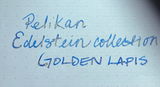 Pelikan
Edelstein collection
GOLDEN LAPIS